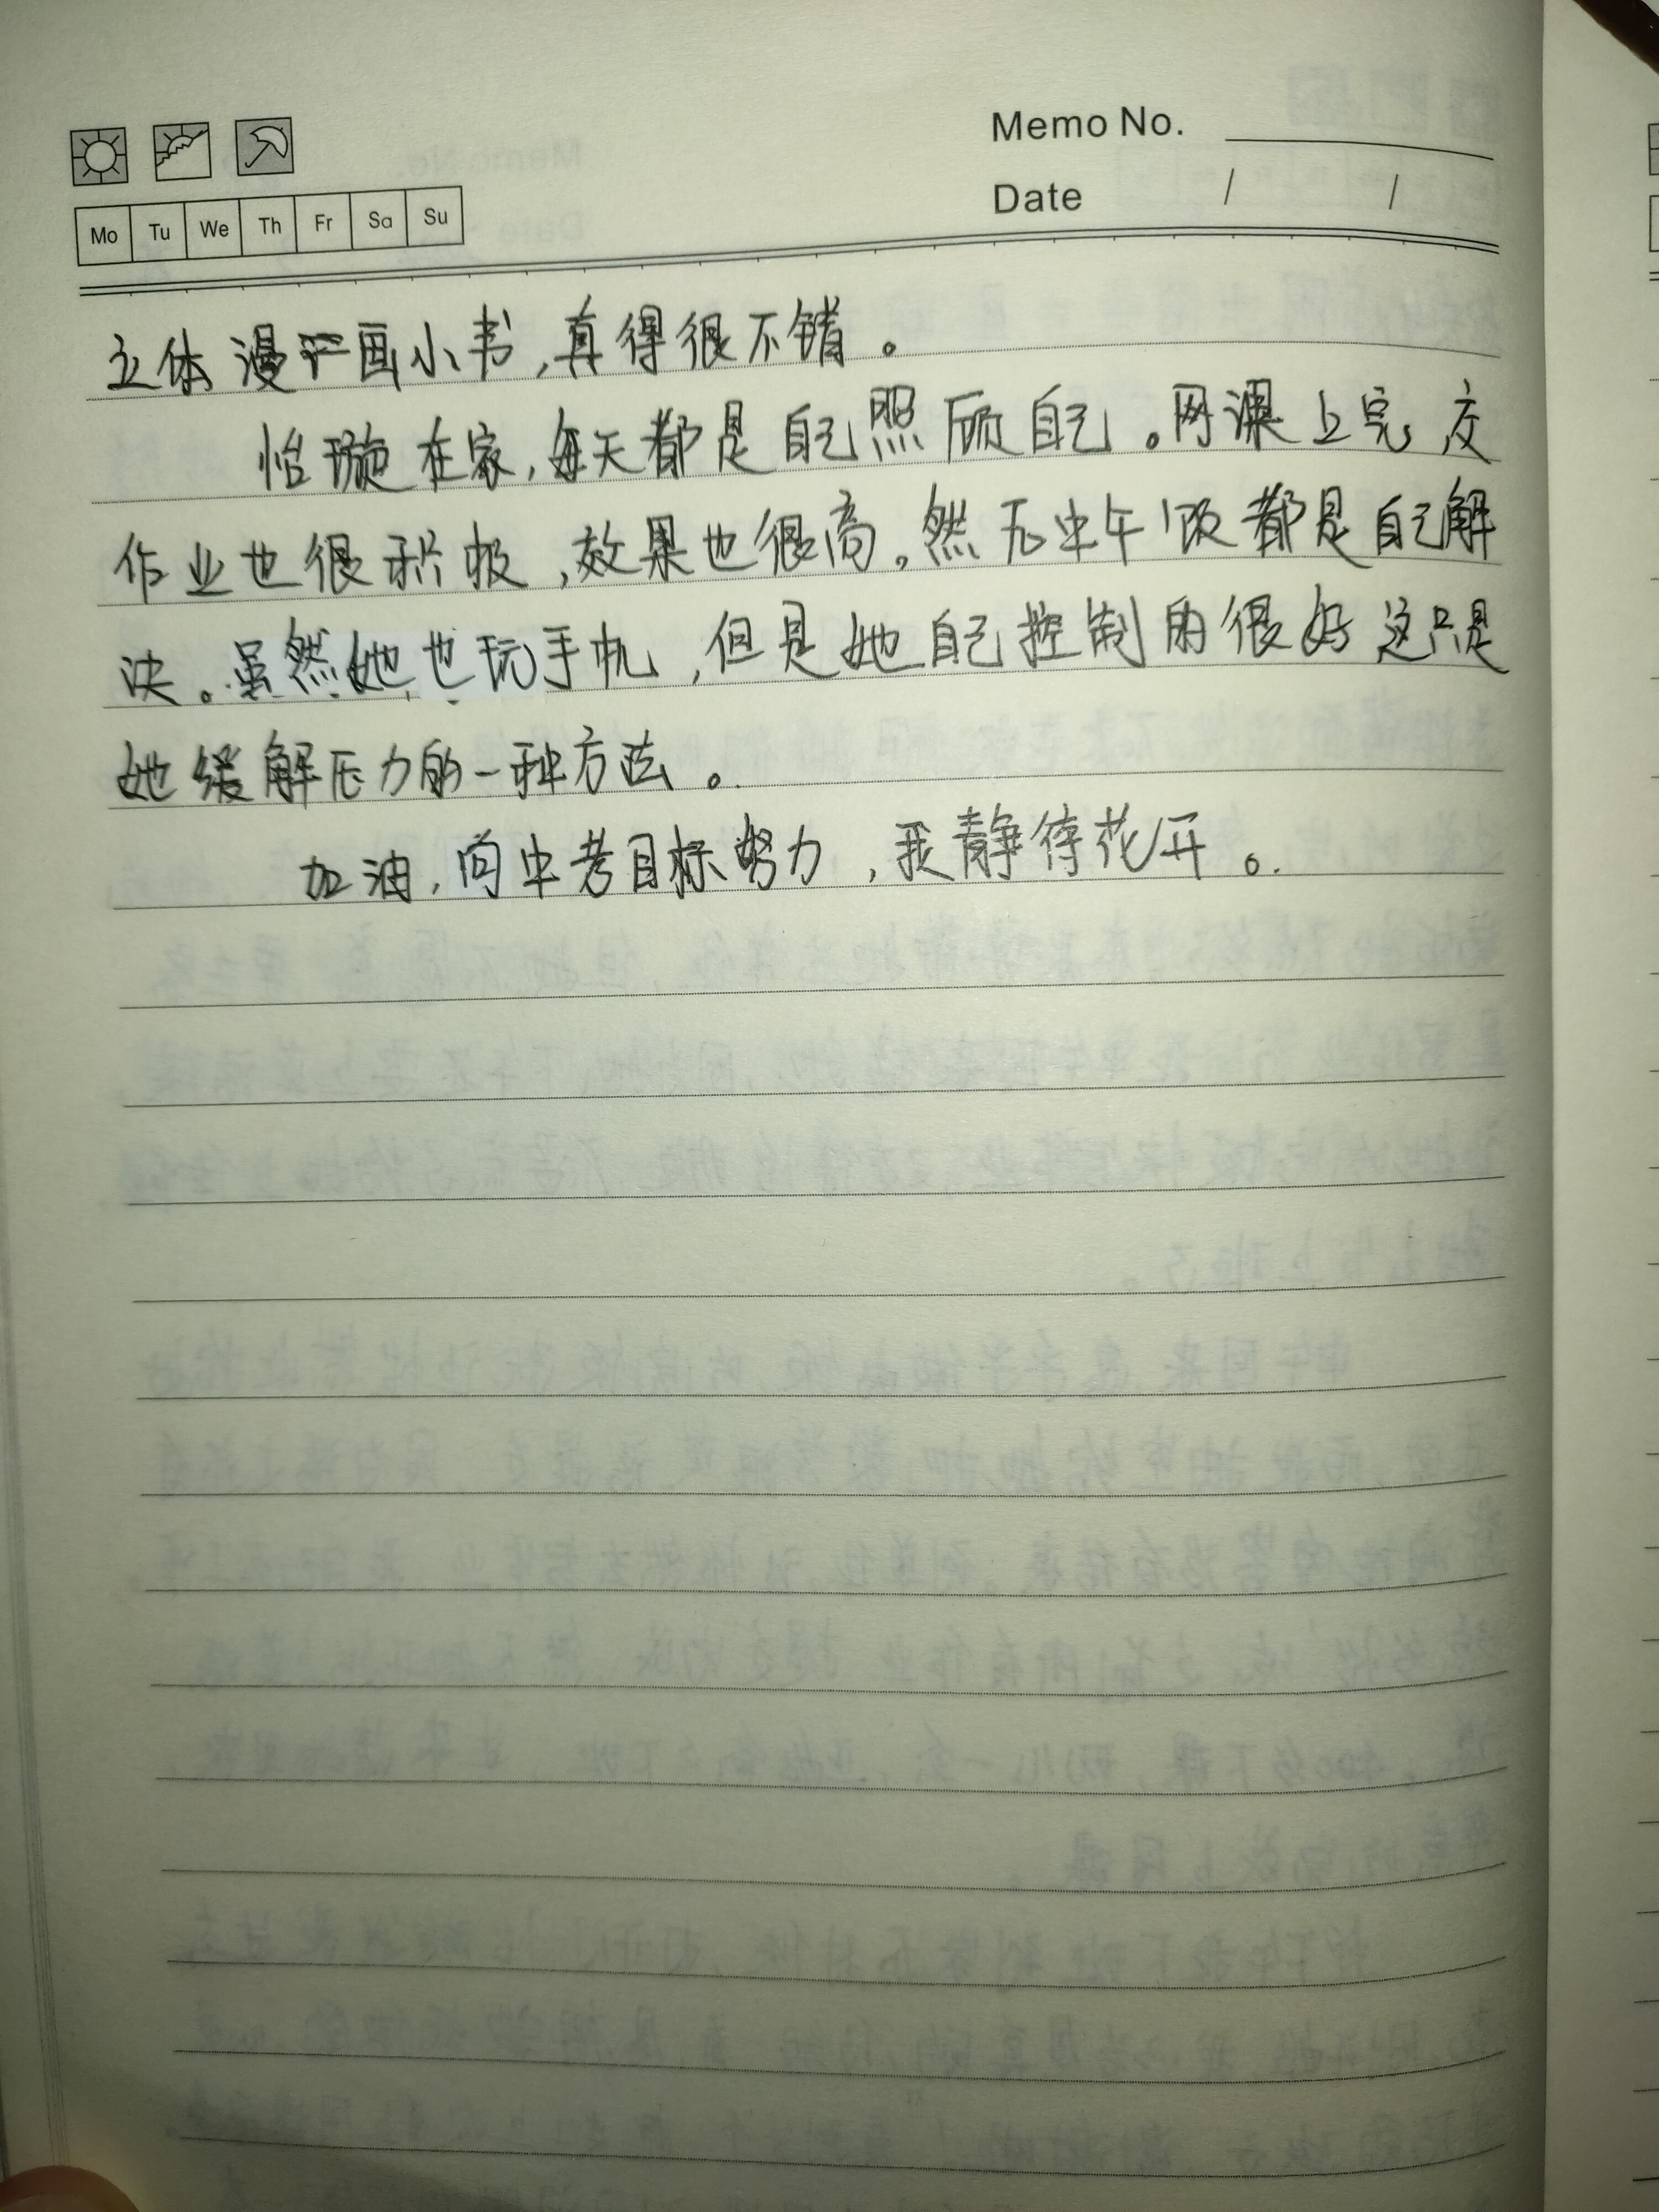 Memo No.
Date / /
Mo Tu We Th Fr Sa Su
立体漫画小书,真得很不错。
怡璇在家,每天都是自己照顾自己。网课上完,交
作业也很积极,效果也很高。然后中午饭都是自己解
决。虽然她也玩手机,但是她自己控制的很好这只是
她缓解压力的一种方法。
加油,向中考目标努力,我静待花开。